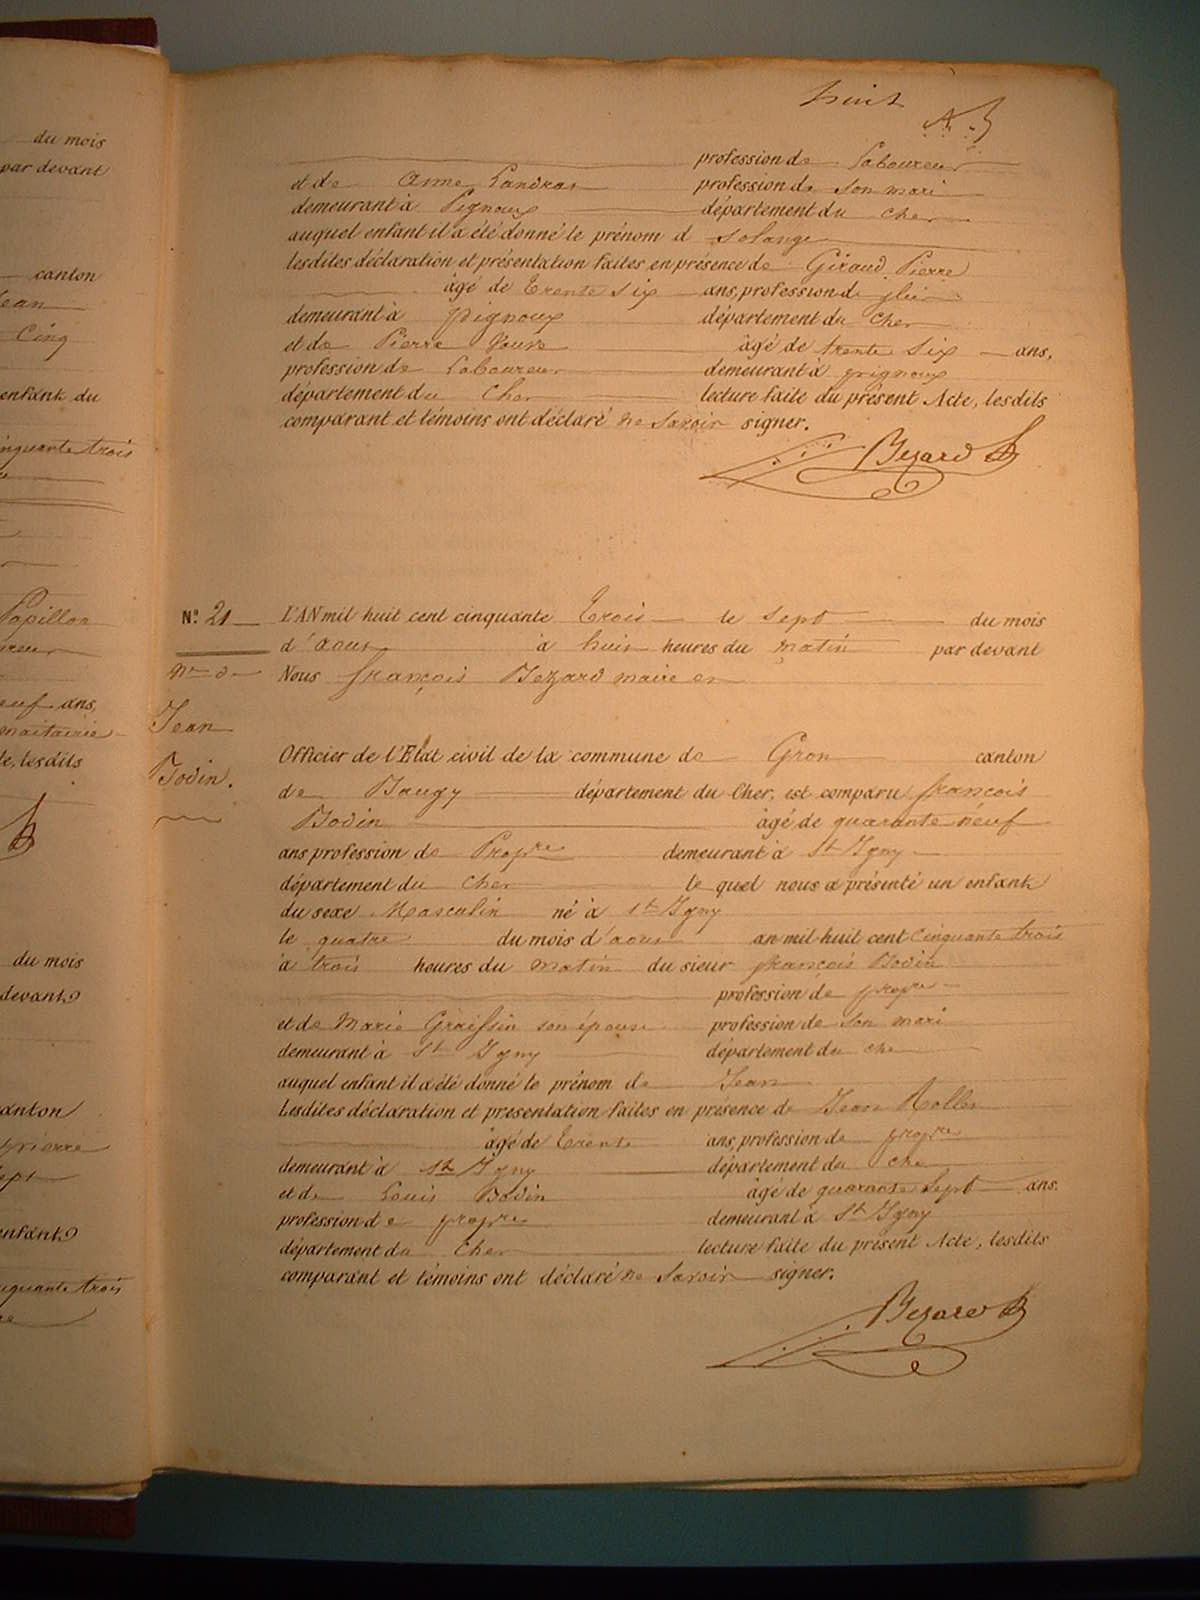 huit
profession de Laboureur
et de Anne Landras profession de son mari
demeurant à Pignoux département du Cher
auquel enfant il a été donné le prénom d Solange
lesdites déclaration et présentation faites en présence de Giraud Pierre
âgé de trente six ans, profession de
demeurant à pignoux département du Cher
et de Pierre âgé de trente six ans,
profession de Laboureur demeurant à pignoux
département du Cher lecture faite du présent Acte, lesdits
comparant et témoins ont déclaré ne Savoir signer.
Bezard
N° 21 L'AN mil huit cent cinquante trois le Sept du mois
d'aout à huit heures du matin par devant
Nous françois Bezard maire et
Jean
Bodin.
Officier de l'Etat civil de la commune de Gron canton
de Baugy département du Cher, est comparu françois
Bodin âgé de quarante neuf
ans profession de Propre demeurant à St Igny
département du Cher le quel nous a présenté un enfant
du sexe Masculin né à St Igny
le quatre du mois d'aout an mil huit cent cinquante trois
à trois heures du matin du sieur françois Bodin
profession de propre
et de Marie son épouse profession de son mari
demeurant à St Igny département du che
auquel enfant il a été donné le prénom de Jean
Lesdites déclaration et présentation faites en présence de Jean Rollin
âgé de trente ans, profession de propre
demeurant à St Igny département du che
et de Louis Bodin âgé de quarante Sept ans.
profession de propre demeurant à St Igny
département du Cher lecture faite du présent Acte, lesdits
comparant et témoins ont déclaré ne Savoir signer.
Bezard
du mois
par devant
canton
Jean
Cinq
enfant du
inquante trois
Papillon
ans,
te, lesdits
du mois
devant
canton
pierre
sept
enfant
nquante trois